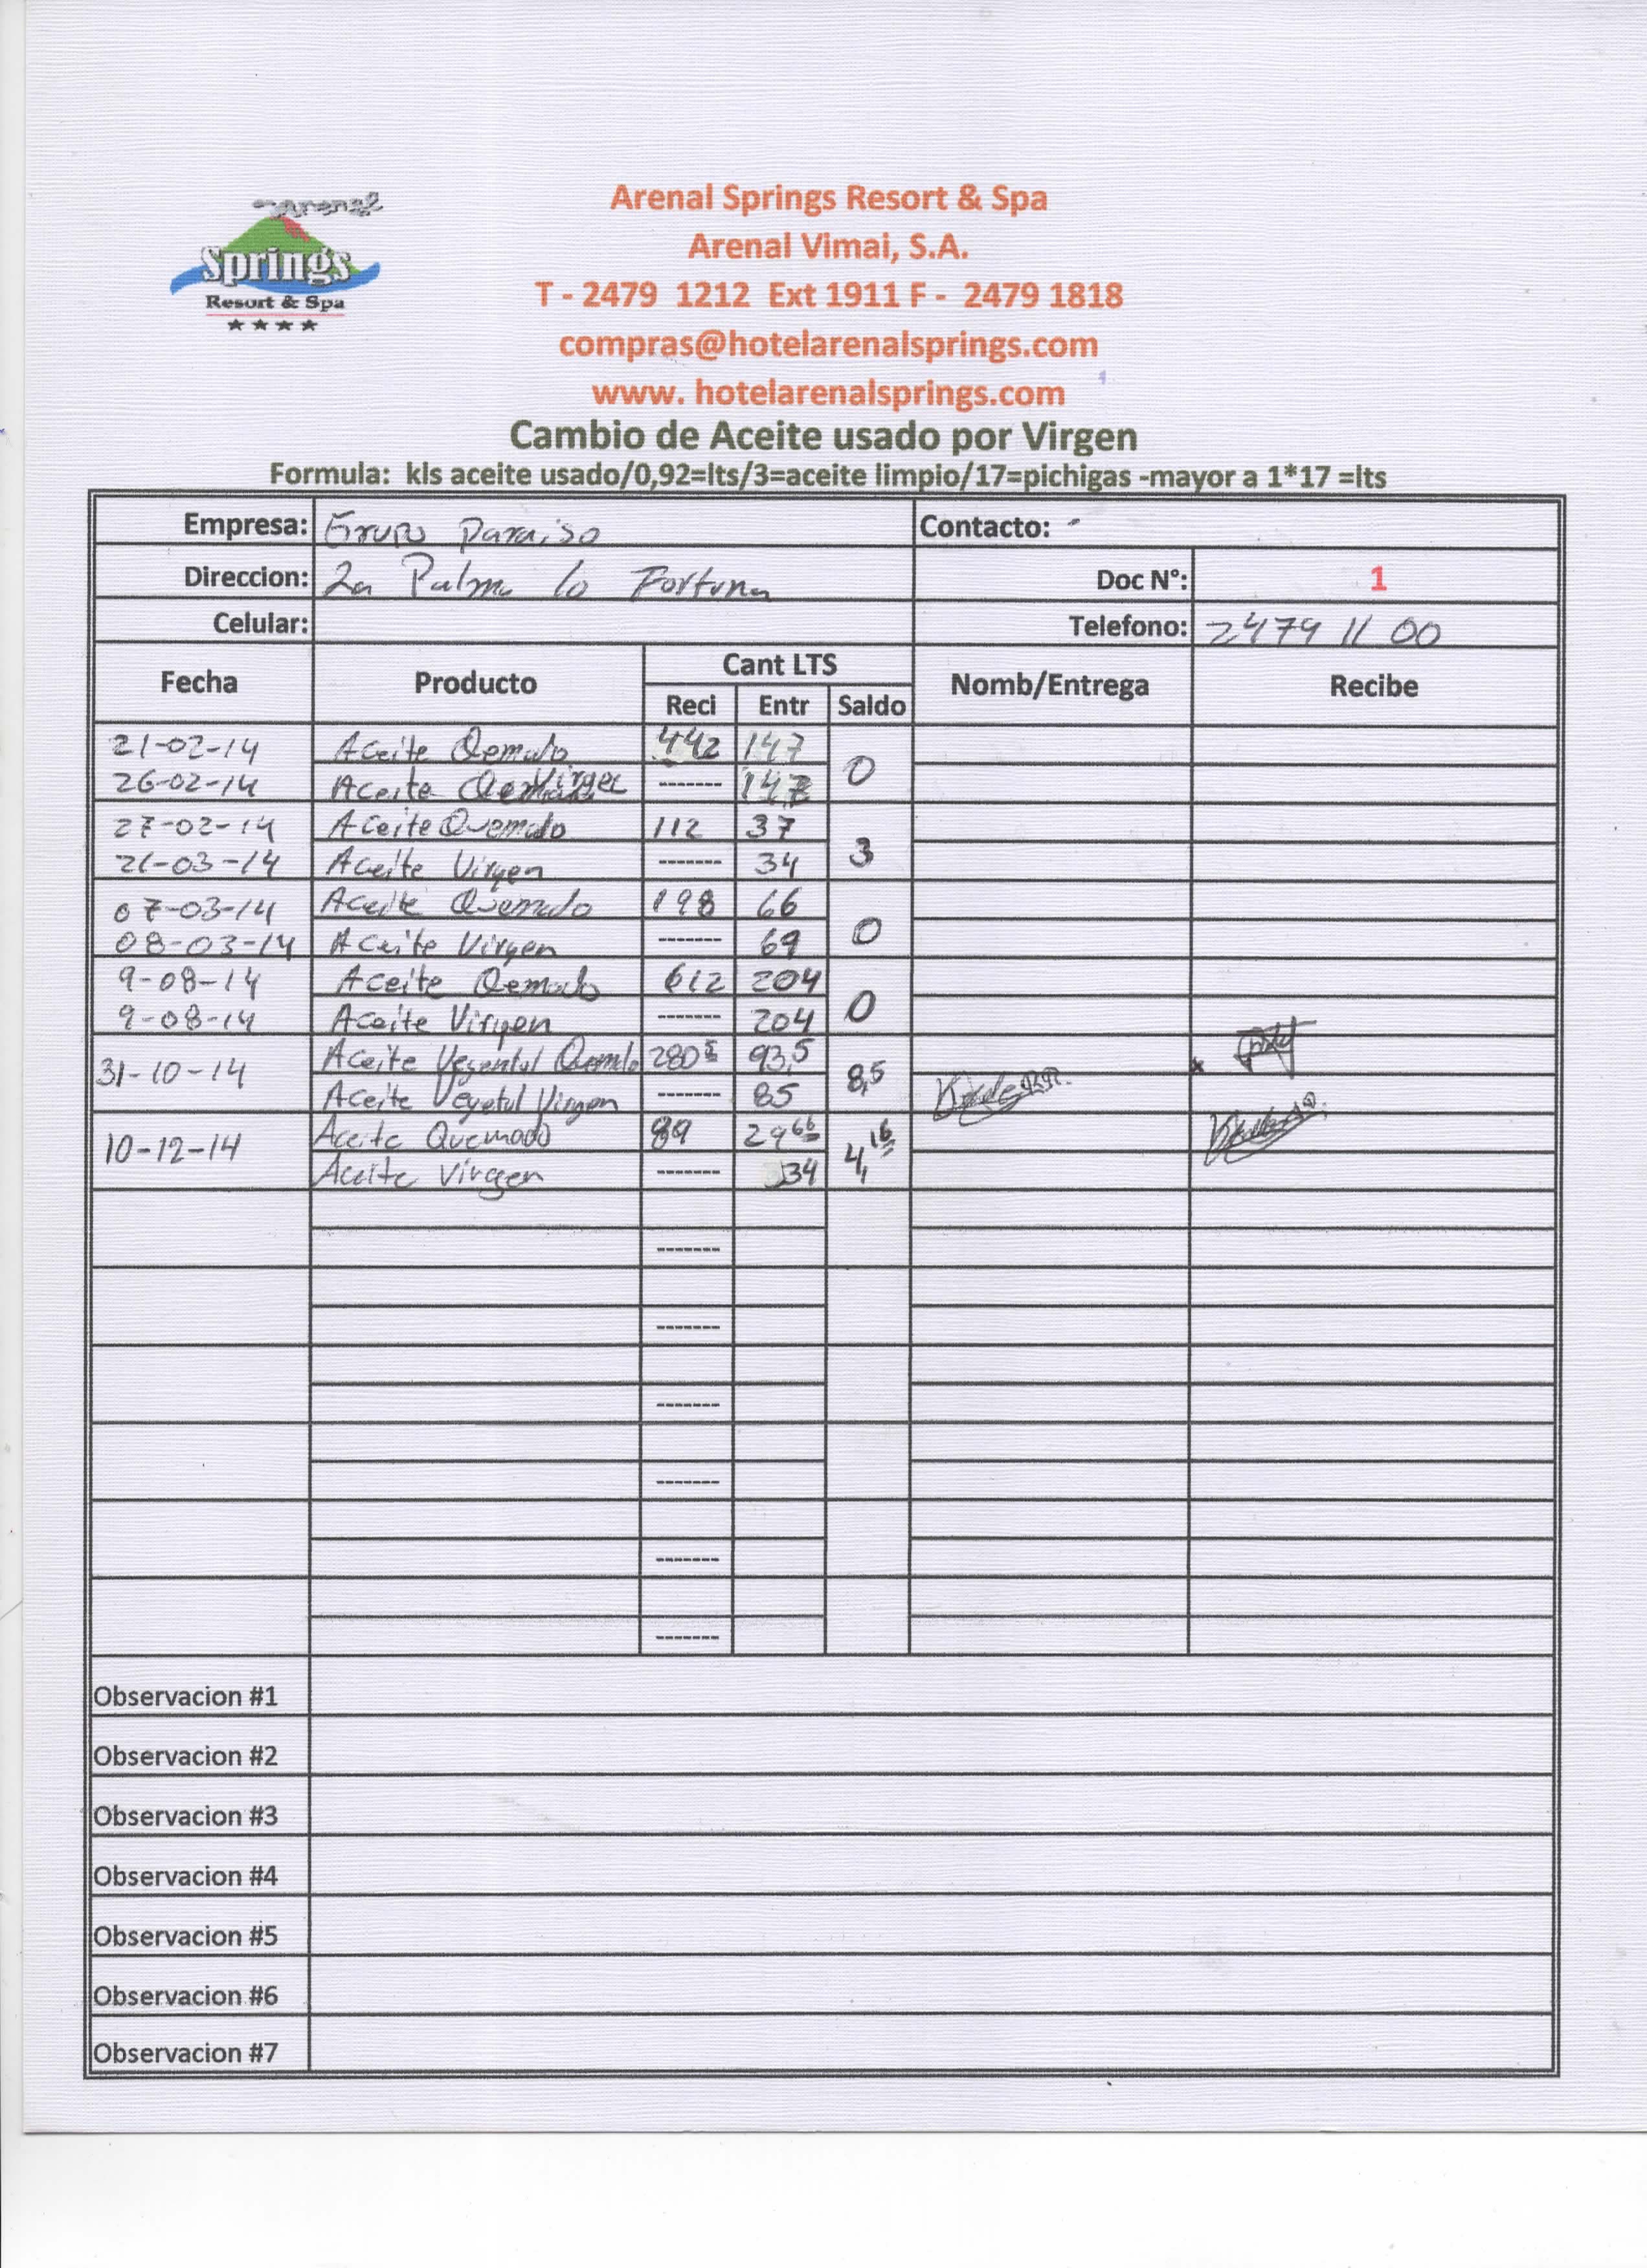 Arenal
Springs
Resort & Spa
Arenal Springs Resort & Spa
Arenal Vimai, S.A.
T - 2479 1212 Ext 1911 F - 2479 1818
compras@hotelarenalsprings.com
www. hotelarenalsprings.com
Cambio de Aceite usado por Virgen
Formula: kls aceite usado/0,92=lts/3=aceite limpio/17=pichigas -mayor a 1*17 =lts
Empresa: Grupo Paraiso Contacto: -
Direccion: La Palma la Fortuna Doc N°: 1
Celular: Telefono: 2479 11 00
Fecha Producto Cant LTS Nomb/Entrega Recibe
Reci Entr Saldo
21-02-14 Aceite Qemado 442 147 0
26-02-14 Aceite Virgen ------- 147
27-02-14 Aceite Quemado 112 37 3
21-03-14 Aceite Virgen ------- 34
07-03-14 Aceite Quemado 198 66 0
08-03-14 Aceite Virgen ------- 69
9-08-14 Aceite Qemado 612 204 0
9-08-14 Aceite Virgen ------- 204
31-10-14 Aceite Vegental Quemdo 280 5 93,5 8,5
Aceite Vegetal Virgen ------- 85
10-12-14 Aceite Quemado 89 29 66 4,16
Aceite Virgen ------- 34
-------
-------
-------
-------
-------
-------
Observacion #1
Observacion #2
Observacion #3
Observacion #4
Observacion #5
Observacion #6
Observacion #7